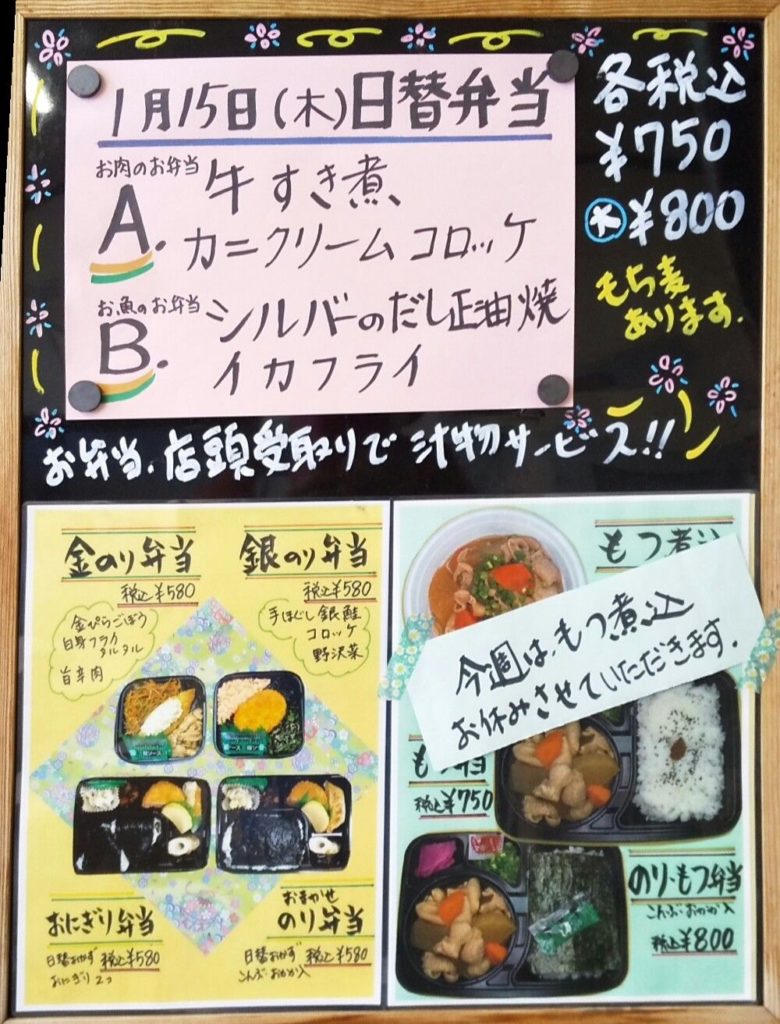 1月15日(木)日替弁当
お肉のお弁当
A.
牛すき煮、
カニクリームコロッケ
お魚のお弁当
B.
シルバーのだし正油焼
イカフライ
各税込
¥750
大¥800
もち麦
あります.
お弁当、店頭受取りで汁物サービス!!
金のり弁当
税込¥580
金ぴらごぼう
白身フライ
タルタル
旨辛肉
銀のり弁当
税込¥580
手ほぐし銀鮭
コロッケ
野沢菜
おにぎり弁当
日替おかず 税込¥580
おにぎり2つ
おまかせ
のり弁当
日替おかず 税込¥580
こんぶ・おかか入
もつ煮込
今週は、もつ煮込
お休みさせていただきます.
税込¥750
のり・もつ弁当
こんぶ・おかか入
税込¥800